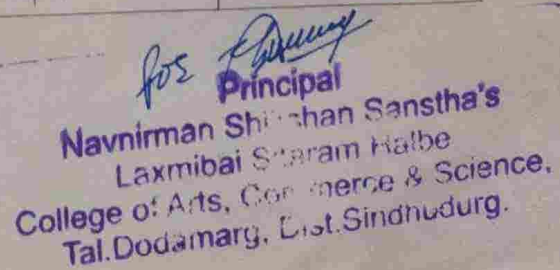 for
Principal
Navnirman Shikshan Sanstha's
Laxmibai Sitaram Halbe
College of Arts, Commerce & Science,
Tal.Dodamarg, Dist.Sindhudurg.